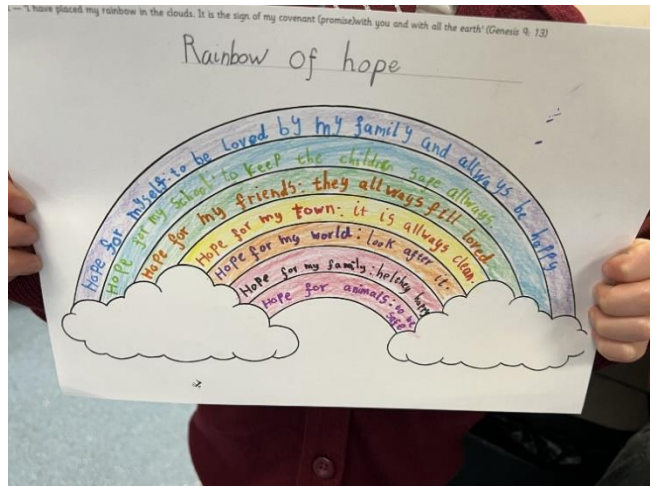 "I have placed my rainbow in the clouds. It is the sign of my covenant (promise)with you and with all the earth' (Genesis 9: 13)
Rainbow of hope
Hope for myself: to be loved by my family and allways be happy
Hope for my school: to keep the children safe allways.
Hope for my friends: they allways fell loved
Hope for my town: it is allways clean.
Hope for my world: look after it.
Hope for my family: helthey happy
Hope for animals: to be safe